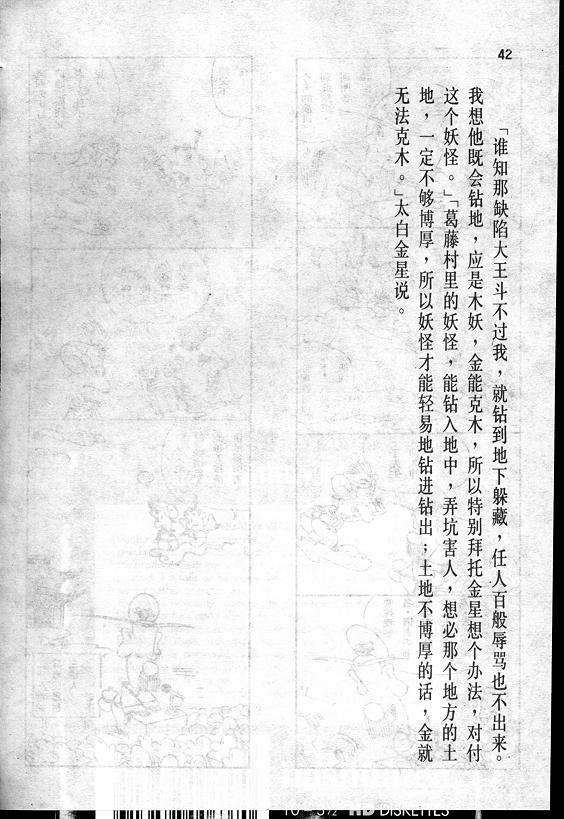 42
「谁知那缺陷大王斗不过我，就钻到地下躲藏，任人百般辱骂也不出来。
我想他既会钻地，应是木妖，金能克木，所以特别拜托金星想个办法，对付
这个妖怪。」「葛藤村里的妖怪，能钻入地中，弄坑害人，想必那个地方的土
地，一定不够博厚，所以妖怪才能轻易地钻进钻出；土地不博厚的话，金就
无法克木。」太白金星说。
DISKETTES